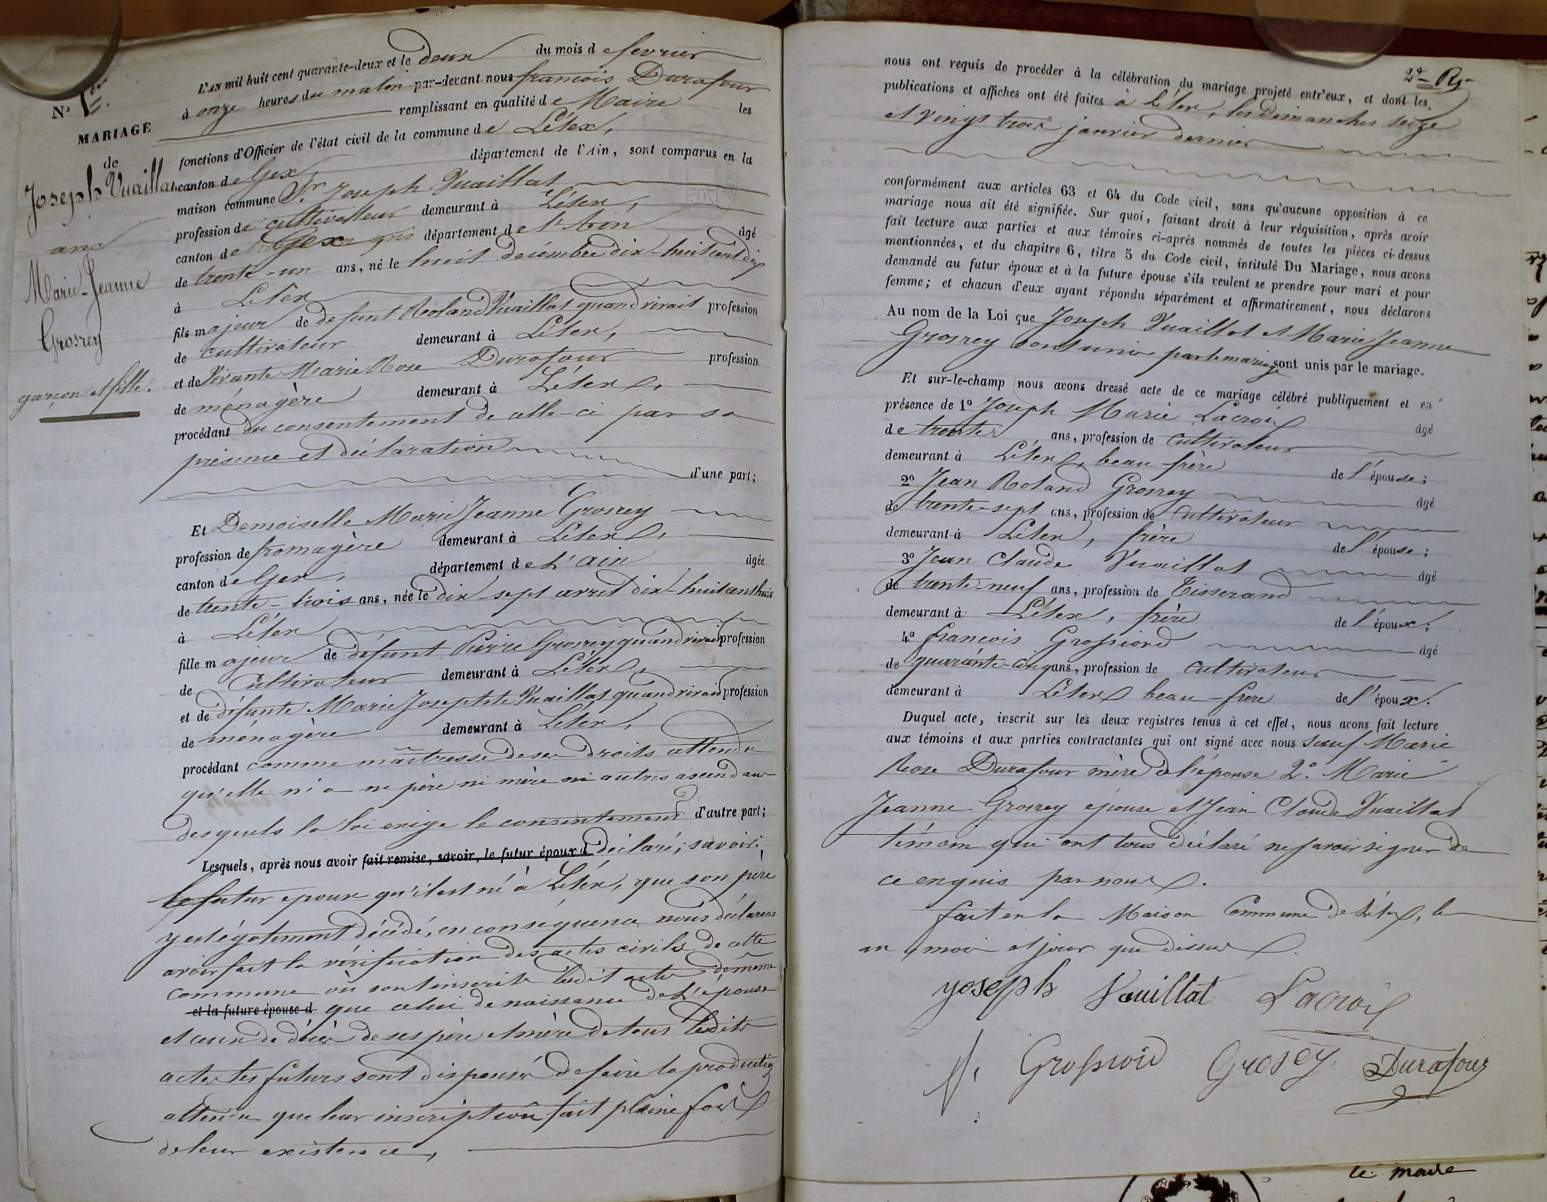 N.° 1er
MARIAGE
de
Joseph Vuaillat
and
Marie-Jeanne
Grosrey
garçon et fille.
L'AN mil huit cent quarante-deux et le deux du mois de fevrier
à onze heures du matin par-devant nous francois Durafour
remplissant en qualité de Maire les
fonctions d'Officier de l'état civil de la commune de Lélex,
canton de Gex département de l'Ain, sont comparus en la
maison commune Sr. Joseph Vuaillat
profession de cultivateur demeurant à Lélex,
canton de Gex département de l'Ain âgé
de trente-un ans, né le huit décembre dix-huit cent dix
à Lélex
fils majeur de defunt Roland Vuaillat quand vivait profession
de cultivateur demeurant à Lélex,
et de vivante Marie Rose Durafour profession
de ménagère demeurant à Lélex,
procédant du consentement de celle-ci par sa
présence et déclaration
d'une part;
Et Demoiselle Marie Jeanne Grosrey
profession de fromagère demeurant à Lélex,
canton de Gex, département de L'ain âgée
de trente-trois ans, née le dix sept avril dix-huit cent huit
à Lélex
fille majeur de défunt Pierre Grosrey quand vivait profession
de Cultivateur demeurant à Lélex,
et de défunte Marie Josephte Vuaillat quand vivait profession
de ménagère demeurant à Lélex,
procédant comme maîtresse de ses droits attendu
qu'elle n'a ni père ni mère ni autres ascendans
desquels la loi exige le consentement d'autre part;
Lesquels, après nous avoir fait remise, savoir, le futur époux d déclaré, savoir;
le futur epoux qu'il est né à Lélex, que son père
y est également décédé, en conséquence nous déclarons
avoir fait la vérification des actes civils de cette
commune où sont inscrits ledit acte de même
et la future épouse d que celui de naissance de l'épouse
et ceux de décès de ses père et mère de tous lesdits
actes les futurs sont dispensés de faire la production
attendu que leur inscription fait pleine foi
de leur existence,
2e Rg
nous ont requis de procéder à la célébration du mariage projeté entr'eux, et dont les
publications et affiches ont été faites à Lélex, les dimanches seize
et vingt trois janvier dernier
conformément aux articles 63 et 64 du Code civil, sans qu'aucune opposition à ce
mariage nous ait été signifiée. Sur quoi, faisant droit à leur réquisition, après avoir
fait lecture aux parties et aux témoins ci-après nommés de toutes les pièces ci-dessus
mentionnées, et du chapitre 6, titre 5 du Code civil, intitulé Du Mariage, nous avons
demandé au futur époux et à la future épouse s'ils veulent se prendre pour mari et pour
femme; et chacun d'eux ayant répondu séparément et affirmativement, nous déclarons
Au nom de la Loi que Joseph Vuaillat et Marie Jeanne
Grosrey sont unis par le mariage sont unis par le mariage.
Et sur-le-champ nous avons dressé acte de ce mariage célébré publiquement et en
présence de 1° Joseph Marie Lacroix âgé
de trente ans, profession de Cultivateur
demeurant à Lélex, beau-frère de l'épouse;
2° Jean Roland Grosrey âgé
de trente-sept ans, profession de Cultivateur
demeurant à Lélex, frère de l'épouse;
3° Jean Claude Vuaillat âgé
de trente-neuf ans, profession de Tisserand
demeurant à Lélex, frère de l'époux;
4° francois Grossiord âgé
de quarante-cinq ans, profession de Cultivateur
demeurant à Lélex beau-frère de l'époux.
Duquel acte, inscrit sur les deux registres tenus à cet effet, nous avons fait lecture
aux témoins et aux parties contractantes qui ont signé avec nous sauf Marie
Rose Durafour mère de l'épouse 2.° Marie
Jeanne Grosrey épouse et Jean Claude Vuaillat
témoin qui ont tous déclaré ne savoir signer de
ce enquis par nous.
fait en la Maison Commune de Lélex, le
an mois et jour que dessus.
yoseph Vuaillat Lacroix
f. Grossiord Grosrey Durafour
le maire